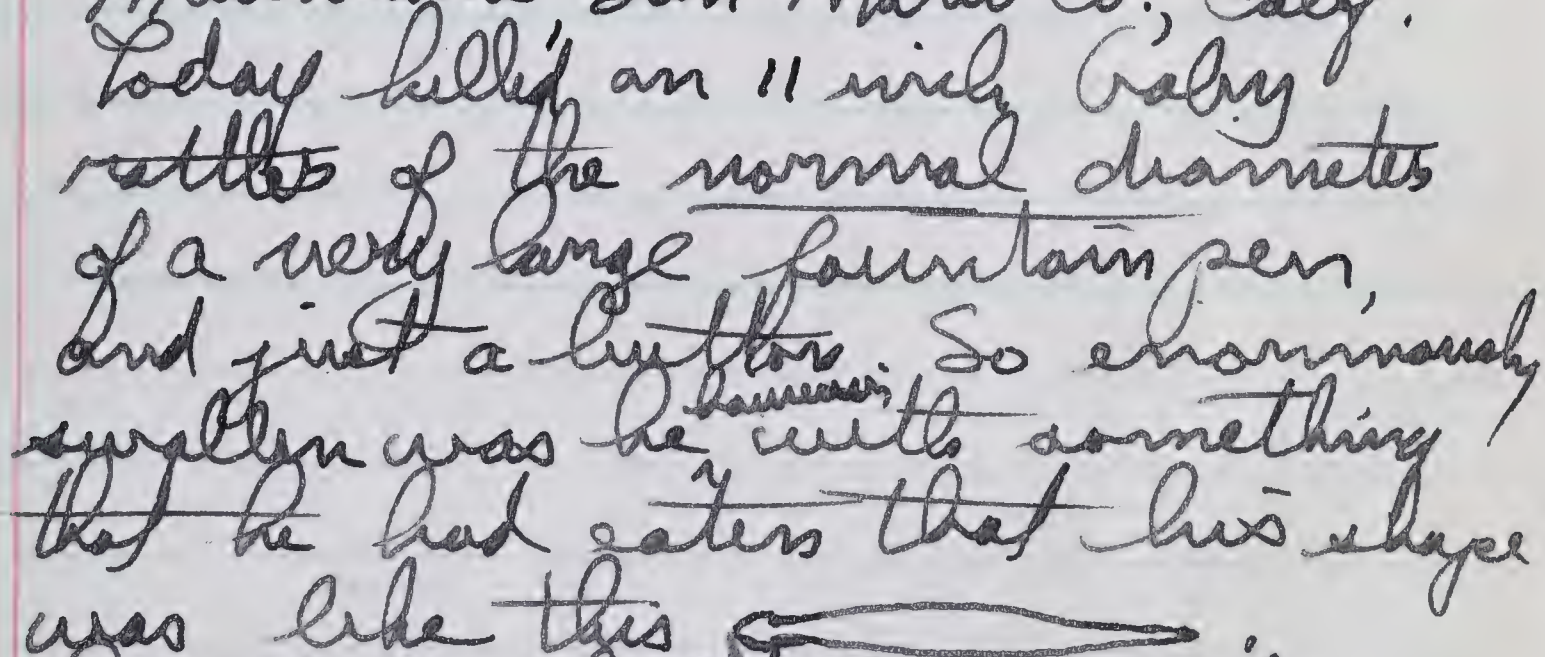 San Mateo Co., Calif.
Today killed an 11 inch baby
rattler of the normal diameter
of a very large fountain pen,
and just a button. So enormously
swollen was he however with something
that he had eaten that his shape
was like this